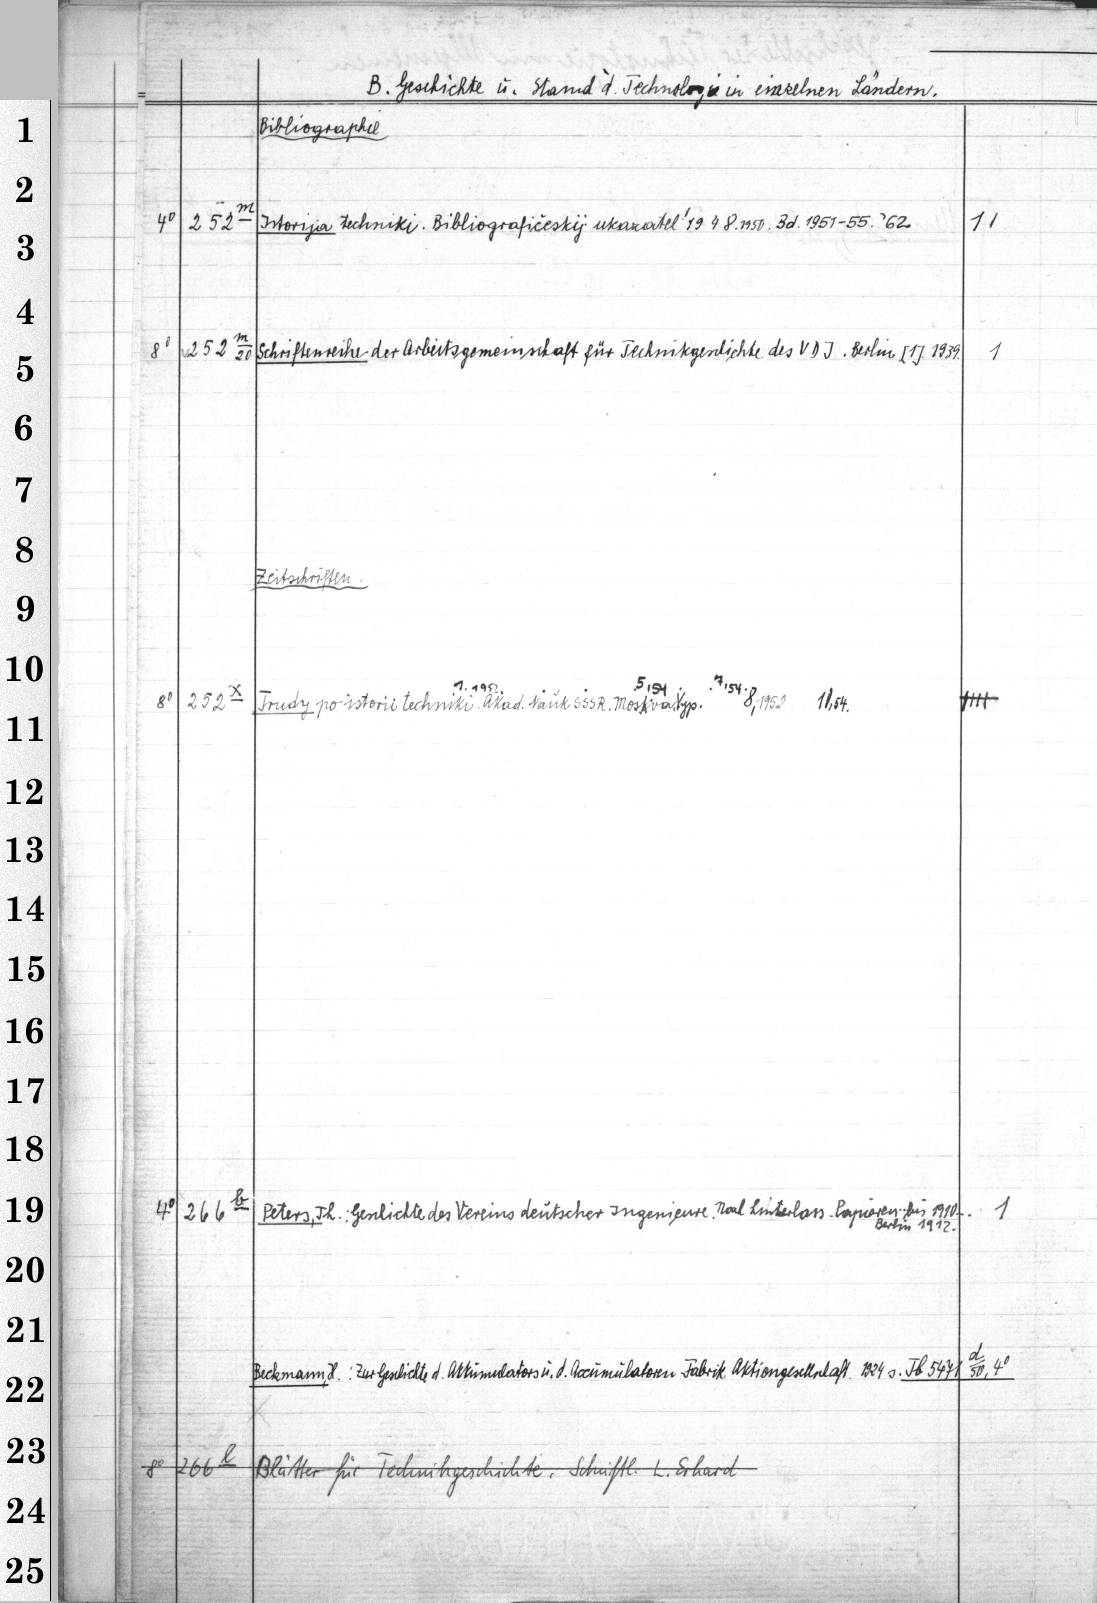 B. Geschichte u. Stand d. Technologie in einzelnen Ländern.
1
Bibliographie
2
4° 252 m Istorija techniki. Bibliografičeskij ukazatel' 1948. 1950. 3d. 1951-55. '62 11
3
4
8° 252 m/20 Schriftenreihe der Arbeitsgemeinschaft für Technikgeschichte des VDI. Berlin [1]. 1939. 1
5
6
7
8
Zeitschriften.
9
10
1. 1952. 5,54 7,54.
8° 252 x Trudy po istorii techniki. Akad. Nauk SSSR. Moskva. Vyp. 8,1952 11,54.
11
12
13
14
15
16
17
18
19
4° 266 b Peters, Th.: Geschichte des Vereins deutscher Ingenieure. Nach hinterlass. Papieren. bis 1910. 1
Berlin 1912.
20
21
Beckmann, H.: Zur Geschichte d. Akkumulators u. d. Accumulatoren Fabrik Aktiengesellschaft. 1924 s. Tb 5471 d/50, 4°
22
23
8° 266 l Blätter für Technikgeschichte. Schriftl. L. Erhard
24
25